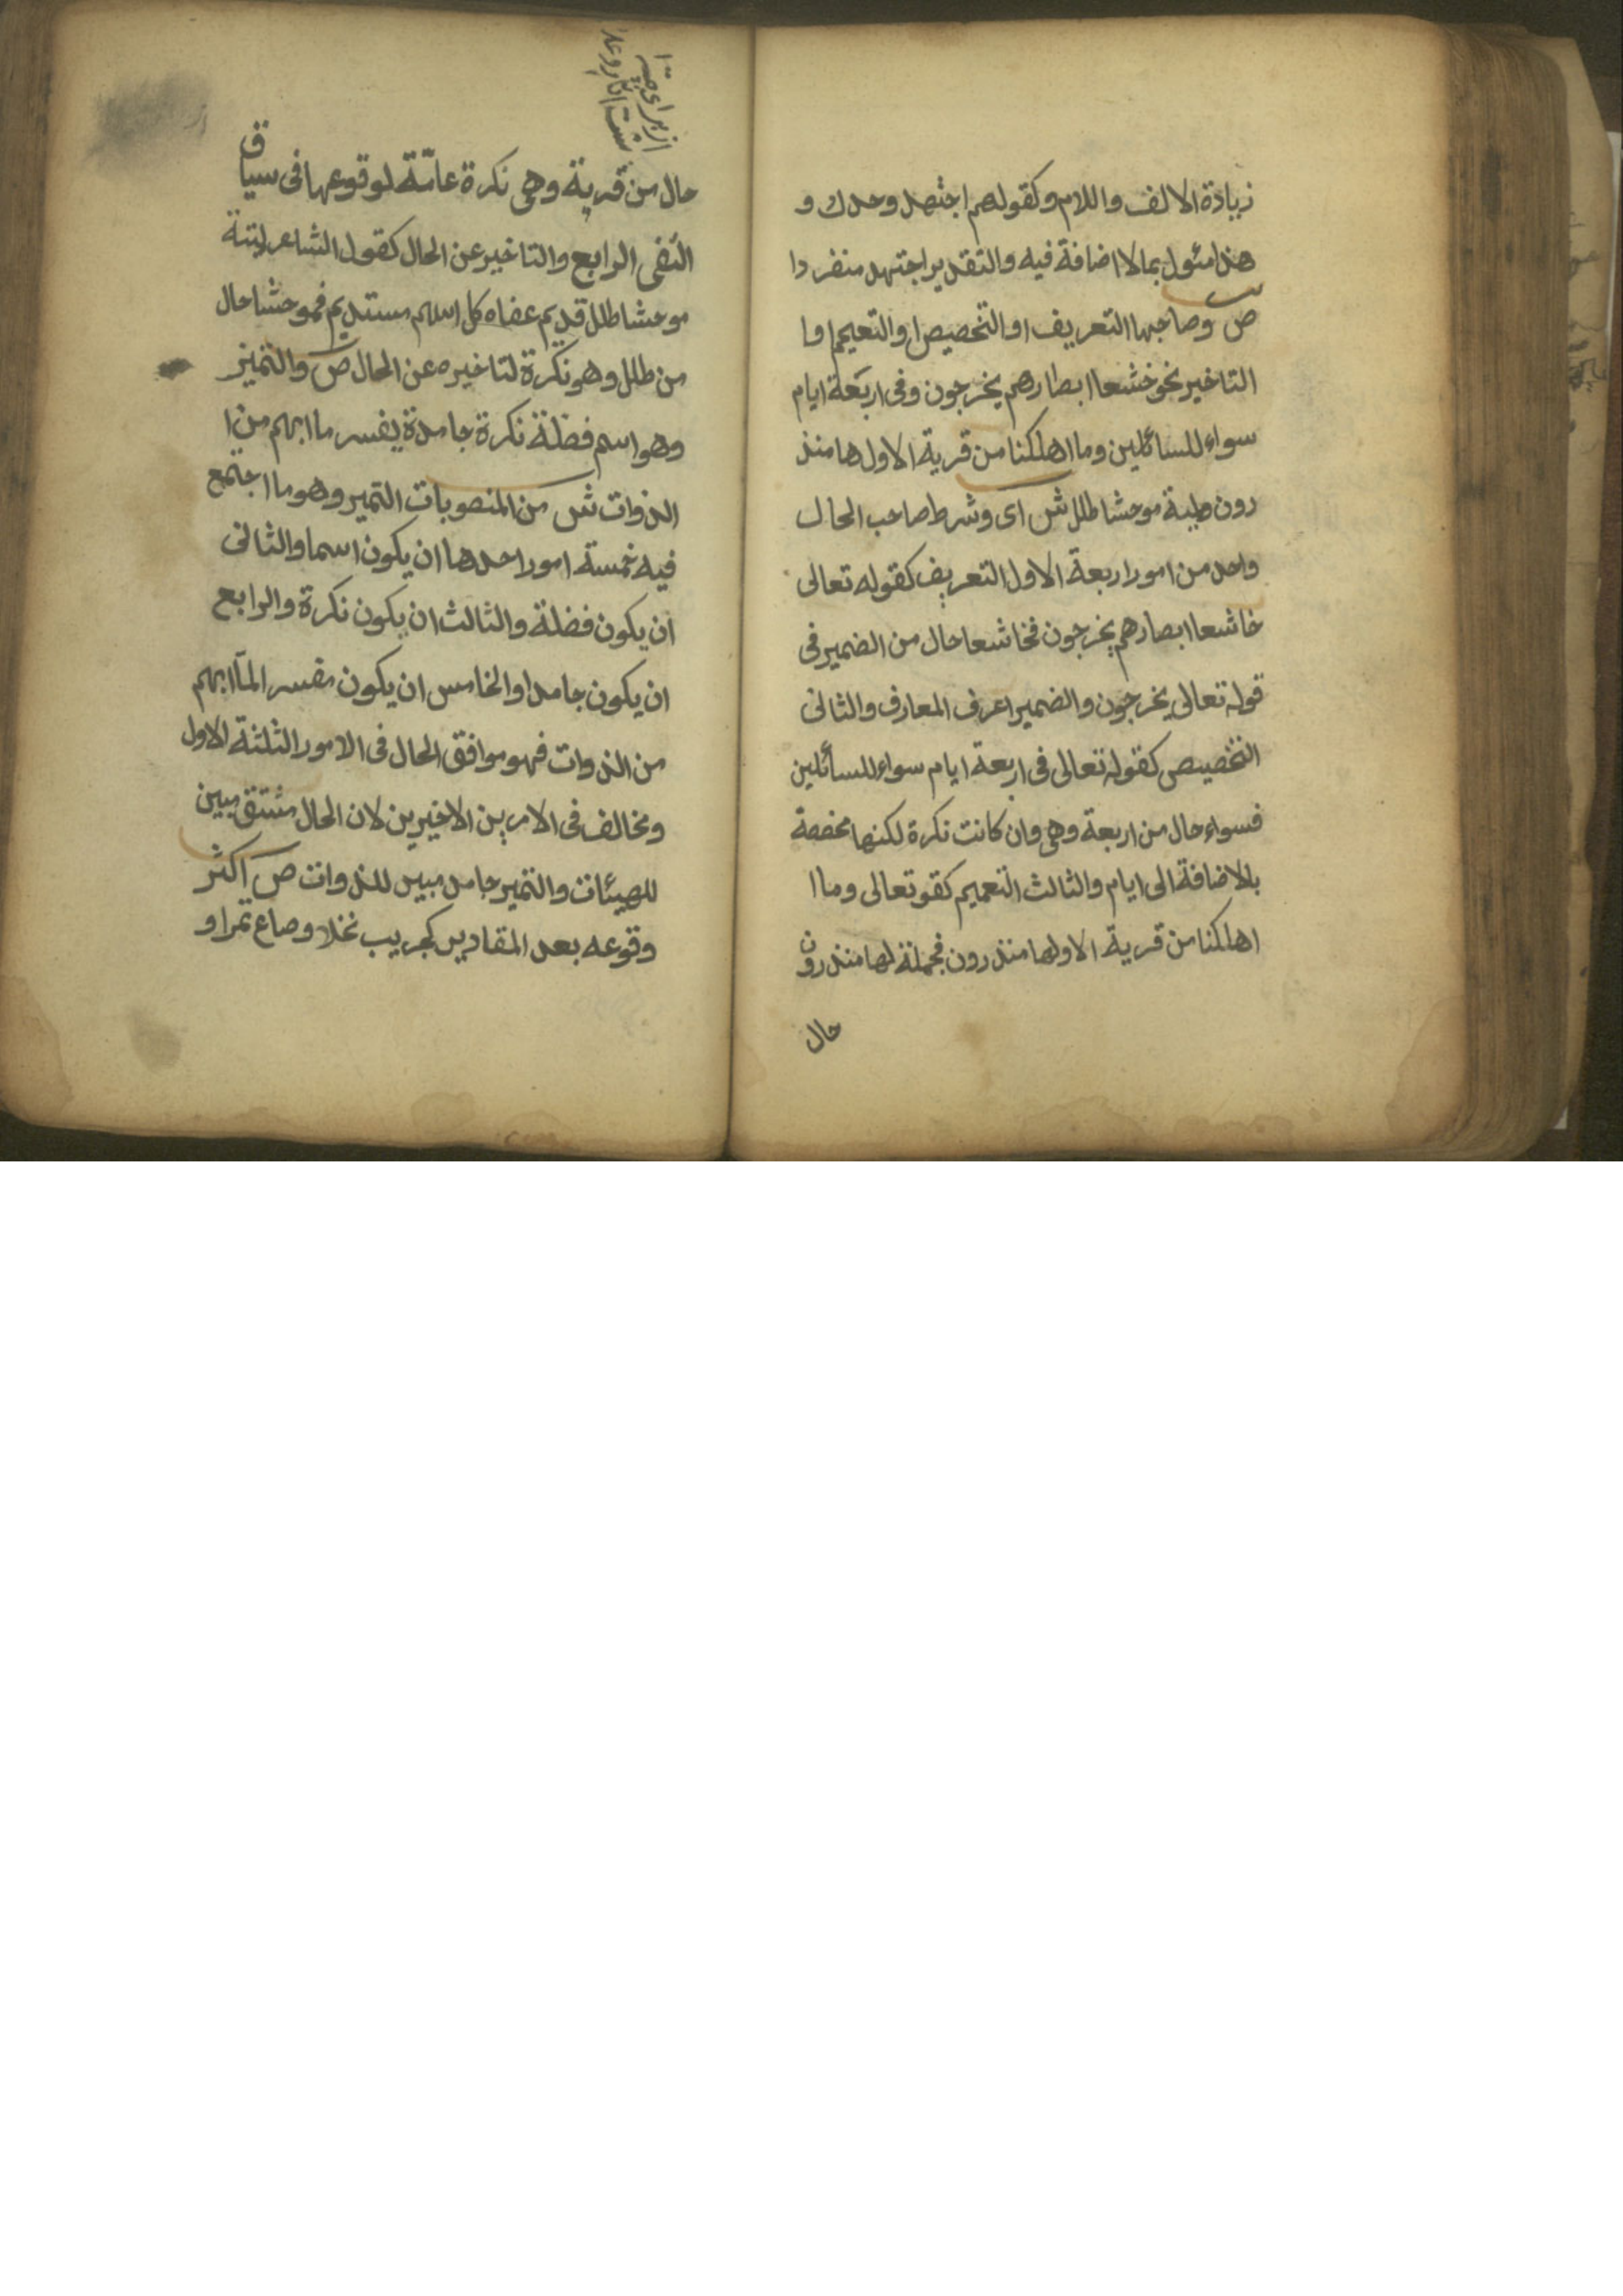 زيادة الالف واللام وكقولهم اجتهد وحدك و
هذا مئول بمالا اضافة فيه والتقدير اجتهد منفردا
ص وصاحبها التعريف او التخصيص او التعيم او ا
التاخير نحو خشعا ابصارهم يخرجون وفى اربعة ايام
سواء للسائلين وما اهلكنا من قرية الاولها منذ
رون ولمية موحشا طلل ش اى وشرط صاحب الحال
واحد من امور اربعة الاول التعريف كقوله تعالى
خاشعا ابصارهم يخرجون فخاشعا حال من الضمير فى
قوله تعالى يخرجون والضمير اعرف المعارف والثانى
التخصيص كقوله تعالى فى اربعة ايام سواء للسائلين
فسواء حال من اربعة وهى وان كانت نكرة لكنها مخصصة
بالاضافة الى ايام والثالث التعميم كقو تعالى وما ا
اهلكنا من قرية الاولها منذرون فجملة لها منذرون
حال
حال من قرية وهى نكرة عامّة لوقوعها فى سياق
النفى الرابع والتاخير عن الحال كقول الشاعر لمية
موحشا طلل قديم عفاه كل اسهم مستديم فموحشا حال
من طلل وهو نكرة لتاخيره عن الحال ص والتميز
وهو اسم فضلة نكرة جامدة يفسر ما ابهم من ا
الذوات ش من المنصوبات التميز وهو ما اجتمع
فيه خمسة امور احدها ان يكون اسما والثانى
ان يكون فضلة والثالث ان يكون نكرة والرابع
ان يكون جامدا والخامس ان يكون مفسر الما ابهم
من الذوات فهو موافق الحال فى الامور الثلثة الاول
ومخالف فى الامرين الاخيرين لان الحال مشتق مبين
للهيئات والتميز جامد مبين للذوات ص اكثر
وقوعه بعد المقادير كجريب نخلا وصاع تمرا و